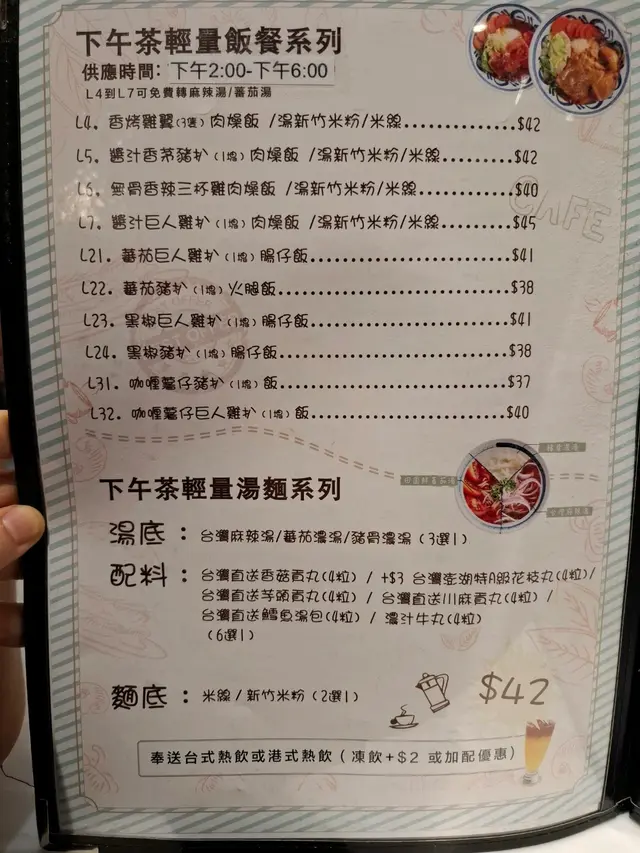 下午茶輕量飯餐系列
供應時間: 下午2:00-下午6:00
L4到L7可免費轉麻辣湯/蕃茄湯
L4. 香烤雞翼(3隻)肉燥飯 /湯新竹米粉/米線............$42
L5. 醬汁香茅豬扒(1塊)肉燥飯 /湯新竹米粉/米線............$42
L6. 無骨香辣三杯雞肉燥飯 /湯新竹米粉/米線............$40
L7. 醬汁巨人雞扒(1塊)肉燥飯 /湯新竹米粉/米線............$45
L21. 蕃茄巨人雞扒(1塊)腸仔飯............$41
L22. 蕃茄豬扒(1塊)火腿飯............$38
L23. 黑椒巨人雞扒(1塊)腸仔飯............$41
L24. 黑椒豬扒(1塊)腸仔飯............$38
L31. 咖喱薯仔豬扒(1塊)飯............$37
L32. 咖喱薯仔巨人雞扒(1塊)飯............$40
CAFE
下午茶輕量湯麵系列
湯底 : 台灣麻辣湯/蕃茄濃湯/豬骨濃湯 (3選1)
配料 : 台灣直送香菇貢丸(4粒) / +$3 台灣澎湖特A級花枝丸(4粒)/
台灣直送芋頭貢丸(4粒) / 台灣直送川麻貢丸(4粒) /
台灣直送鱈魚湯包(4粒) / 濃汁牛丸(4粒)
(6選1)
麵底 : 米線/新竹米粉 (2選1)
$42
奉送台式熱飲或港式熱飲 ( 凍飲+$2 或加配優惠 )